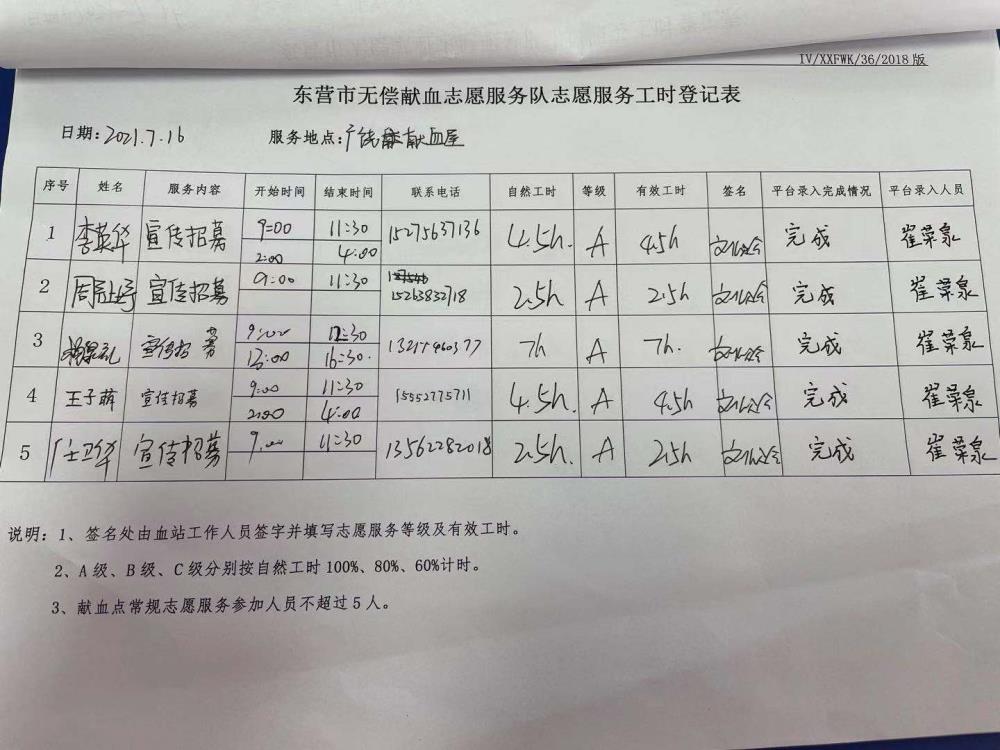 IV/XXFWK/36/2018 版
东营市无偿献血志愿服务队志愿服务工时登记表
日期:2021.7.16 服务地点:广饶献血屋
序号 姓名 服务内容 开始时间 结束时间 联系电话 自然工时 等级 有效工时 签名 平台录入完成情况 平台录入人员
1 李英华 宣传招募 9:00 11:30 15275637136 4.5h. A 4.5h 完成 崔荣泉
2:00 4:00
2 宣传招募 9:00 11:30 15263832718 2.5h A 2.5h 完成 崔荣泉
3 宣传招募 9:00 12:30 7h A 7h. 完成 崔荣泉
13:00 16:30.
4 王子萌 宣传招募 9:00 11:30 15552775711 4.5h. A 4.5h 完成 崔荣泉
2:00 4:00
5 宣传招募 9:00 11:30 13562282018 2.5h. A 2.5h 完成 崔荣泉
说明:1、签名处由血站工作人员签字并填写志愿服务等级及有效工时。
2、A 级、B 级、C 级分别按自然工时 100%、80%、60%计时。
3、献血点常规志愿服务参加人员不超过 5 人。